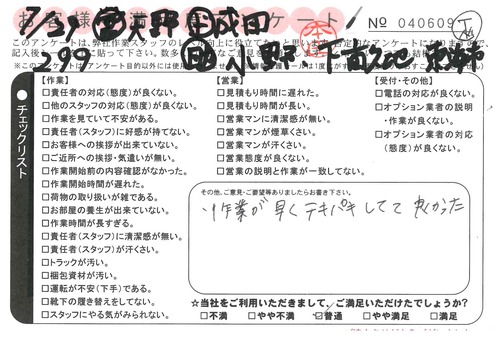 お客様満足度アンケート
№ 040609
【作業】
□責任者の対応(態度)が良くない。
□他のスタッフの対応(態度)が良くない。
□作業を見ていて不安がある。
□責任者(スタッフ)に好感が持てない。
□お客様への挨拶が出来ていない。
□ご近所への挨拶・気遣いが無い。
□作業開始前の内容確認がなかった。
□作業開始時間が遅れた。
□荷物の取り扱いが雑である。
□お部屋の養生が出来ていない。
□作業時間が長すぎる。
□責任者(スタッフ)に清潔感が無い。
□責任者(スタッフ)が汗くさい。
□トラックが汚い。
□梱包資材が汚い。
□運転が不安(下手)である。
□靴下の履き替えをしてない。
□スタッフにやる気がみられない。
【営業】
□見積もり時間に遅れた。
□見積もり時間が長い。
□営業マンに清潔感が無い。
□営業マンが煙草くさい。
□営業マンが汗くさい。
□営業態度が良くない。
□営業の説明と作業が一致してない。
【受付・その他】
□電話の対応が良くない。
□オプション業者の説明
・作業が良くない。
□オプション業者の対応
(態度)が良くない。
●チェックリスト
その他、ご意見・ご要望等ありましたらお書き下さい。
・作業が早くテキパキしてて良かった
☆当社をご利用いただきまして、ご満足いただけたでしょうか?
□不満 □やや不満 ☑普通 □やや満足 □満足